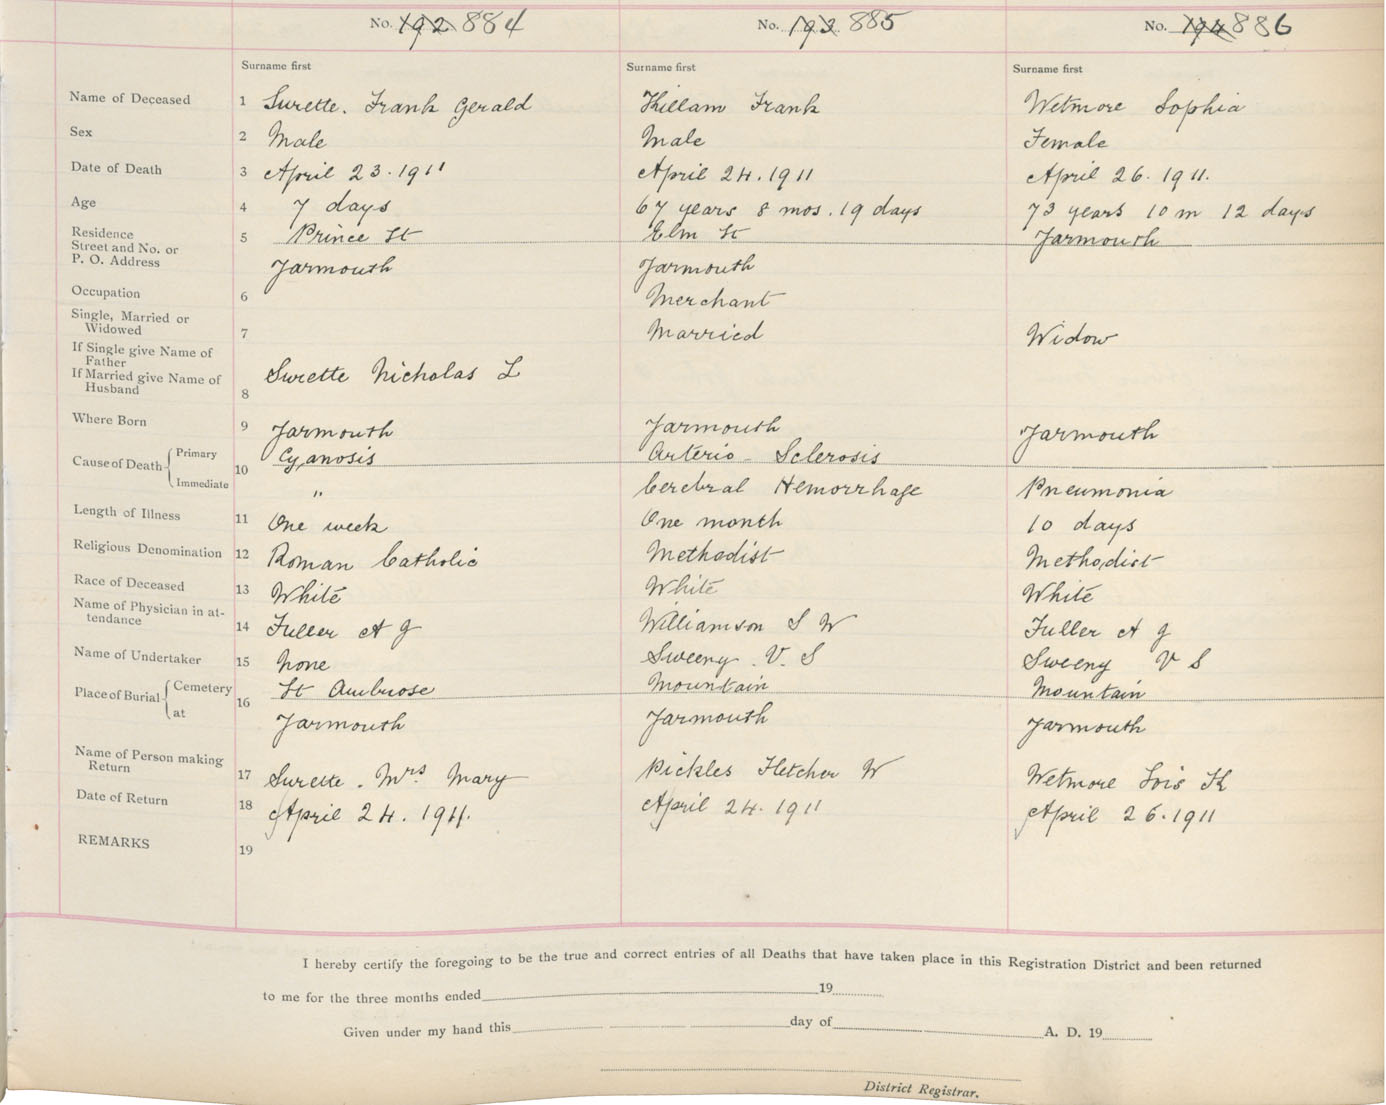 No. 192 884 No. 193 885 No. 194 886
Surname first Surname first Surname first
Name of Deceased 1 Surette. Frank Gerald Killam Frank Wetmore Sophia
Sex 2 Male Male Female
Date of Death 3 April 23. 1911 April 24. 1911 April 26. 1911.
Age 4 7 days 67 years 8 mos. 19 days 73 years 10 m 12 days
Residence 5 Prince St Elm St Yarmouth
Street and No. or
P. O. Address Yarmouth Yarmouth
Occupation 6 Merchant
Single, Married or
Widowed 7 Married Widow
If Single give Name of
Father
If Married give Name of Surette Nicholas L
Husband 8
Where Born 9 Yarmouth Yarmouth Yarmouth
Cause of Death Primary 10 Cyanosis Arterio-Sclerosis
Immediate " Cerebral Hemorrhage Pneumonia
Length of Illness 11 One week One month 10 days
Religious Denomination 12 Roman Catholic Methodist Methodist
Race of Deceased 13 White White White
Name of Physician in at-
tendance 14 Fuller A J Williamson S W Fuller A J
Name of Undertaker 15 None Sweeny. V. S Sweeny V S
Place of Burial Cemetery 16 St Ambrose Mountain Mountain
at Yarmouth Yarmouth Yarmouth
Name of Person making
Return 17 Surette. Mrs Mary Pickles Fletcher W Wetmore Lois K
Date of Return 18 April 24. 1911. April 24. 1911 April 26. 1911
REMARKS 19
I hereby certify the foregoing to be the true and correct entries of all Deaths that have taken place in this Registration District and been returned
to me for the three months ended 19
Given under my hand this day of A. D. 19
District Registrar.